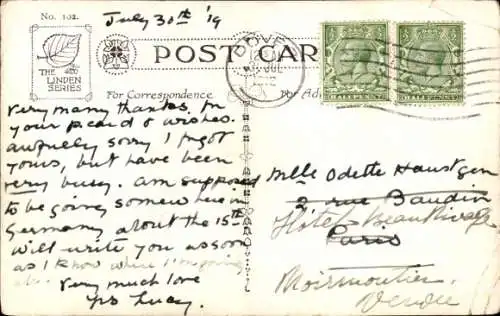 No. 102.
July 30th '19
THE LINDEN
SERIES
POST CARD
For Correspondence
DOVER
JUL
HALFPENNY
HALFPENNY
Very many thanks for
your pcard & wishes.
Awfully sorry I forgot
yours, but have been
very busy. Am supposed
to be going somewhere in
Germany about the 15th
will write you as soon
as I know where I'm going
Very much love
Lucy.
Mlle Odette
2 rue Baudin
Hôtel Beau Rivage
Paris
Noirmoutier
Vendée